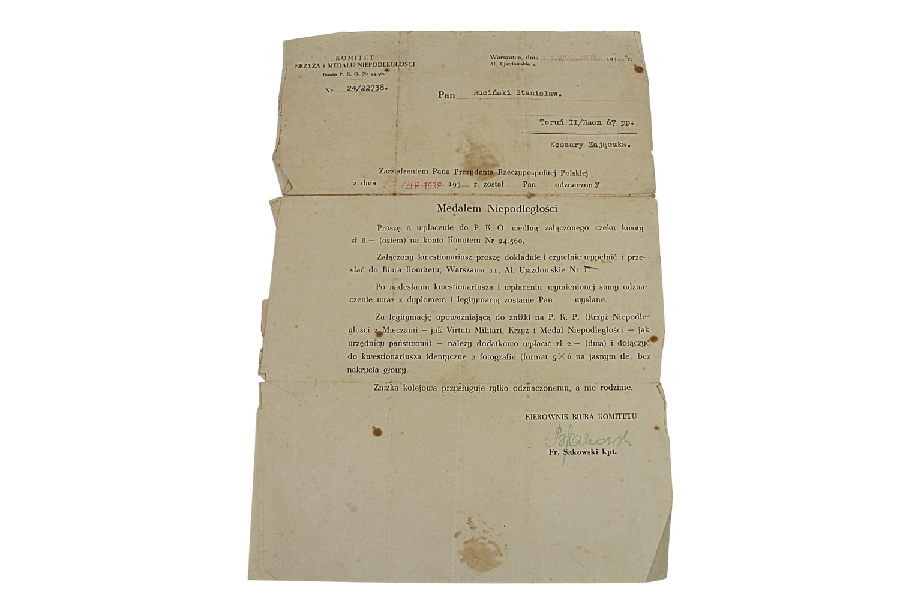 KOMITET
KRZYŻA i MEDALU NIEPODLEGŁOŚCI
Konto P. K. O. Nr
Nr 24/22738.
Warszawa, dnia 193 r.
Al. Ujazdowskie
Pan Ruciński Stanisław.
Toruń II/Baon 67 pp.
Koszary Zajączka.
Zarządzeniem Pana Prezydenta Rzeczypospolitej Polskiej
z dnia 1938 193 r. został Pan odznaczony
Medalem Niepodległości
Proszę o wpłacenie do P. K. O. według załączonego czeku kwoty
zł 8.— (osiem) na konto Komitetu Nr 24.560.
Załączony kwestionariusz proszę dokładnie i czytelnie wypełnić i prze-
słać do Biura Komitetu, Warszawa 11, Al. Ujazdowskie Nr 1
Po nadesłaniu kwestionariusza i wpłaceniu wymienionej sumy odzna-
czenie wraz z dyplomem i legitymacją zostanie Pan wysłane.
Za legitymację upoważniającą do zniżki na P. K. P. (Krzyż Niepodle-
głości z Mieczami — jak Virtuti Militari, Krzyż i Medal Niepodległości — jak
urzędnicy państwowi) — należy dodatkowo wpłacić zł 2.— (dwa) i dołączyć
do kwestionariusza identyczne 2 fotografie (format 5×6 na jasnym tle, bez
nakrycia głowy.
Zniżka kolejowa przysługuje tylko odznaczonemu, a nie rodzinie.
KIEROWNIK BIURA KOMITETU
Fr. Sakowski kpt.